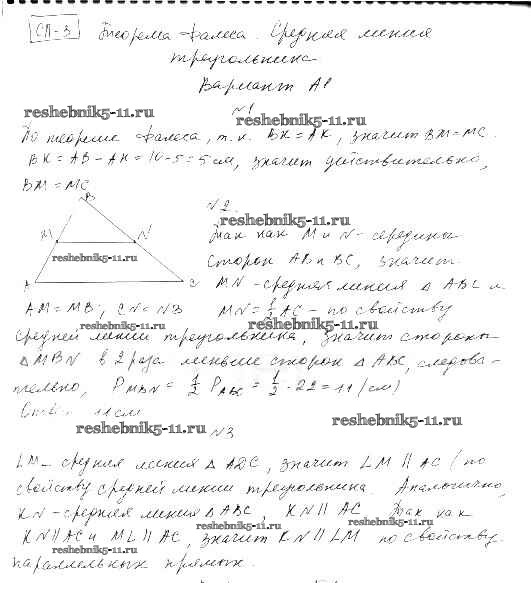 СП-3 Теорема Фалеса. Средняя линия
треугольника.
Вариант А1
№1
reshebnik5-11.ru reshebnik5-11.ru
По теореме Фалеса, т.к. BK = AK, значит BM = MC.
BK = AB - AK = 10-5 = 5 см, значит действительно,
BM = MC
B
№2
reshebnik5-11.ru
M N
Так как M и N - середины
reshebnik5-11.ru
сторон AB и BC, значит
A C
MN - средняя линия △ ABC и
AM = MB; CN = NB MN = 1/2 AC - по свойству
reshebnik5-11.ru reshebnik5-11.ru
средней линии треугольника, значит стороны
△ MBN в 2 раза меньше сторон △ ABC, следова-
тельно, P MBN = 1/2 P ABC = 1/2 · 22 = 11 (см)
Ответ 11 см
reshebnik5-11.ru reshebnik5-11.ru
№3
LM - средняя линия △ ADC, значит LM || AC (по
свойству средней линии треугольника. Аналогично,
KN - средняя линия △ ABC, KN || AC Так как
reshebnik5-11.ru reshebnik5-11.ru
KN || AC и ML || AC, значит KN || LM по свойству
reshebnik5-11.ru
параллельных прямых.